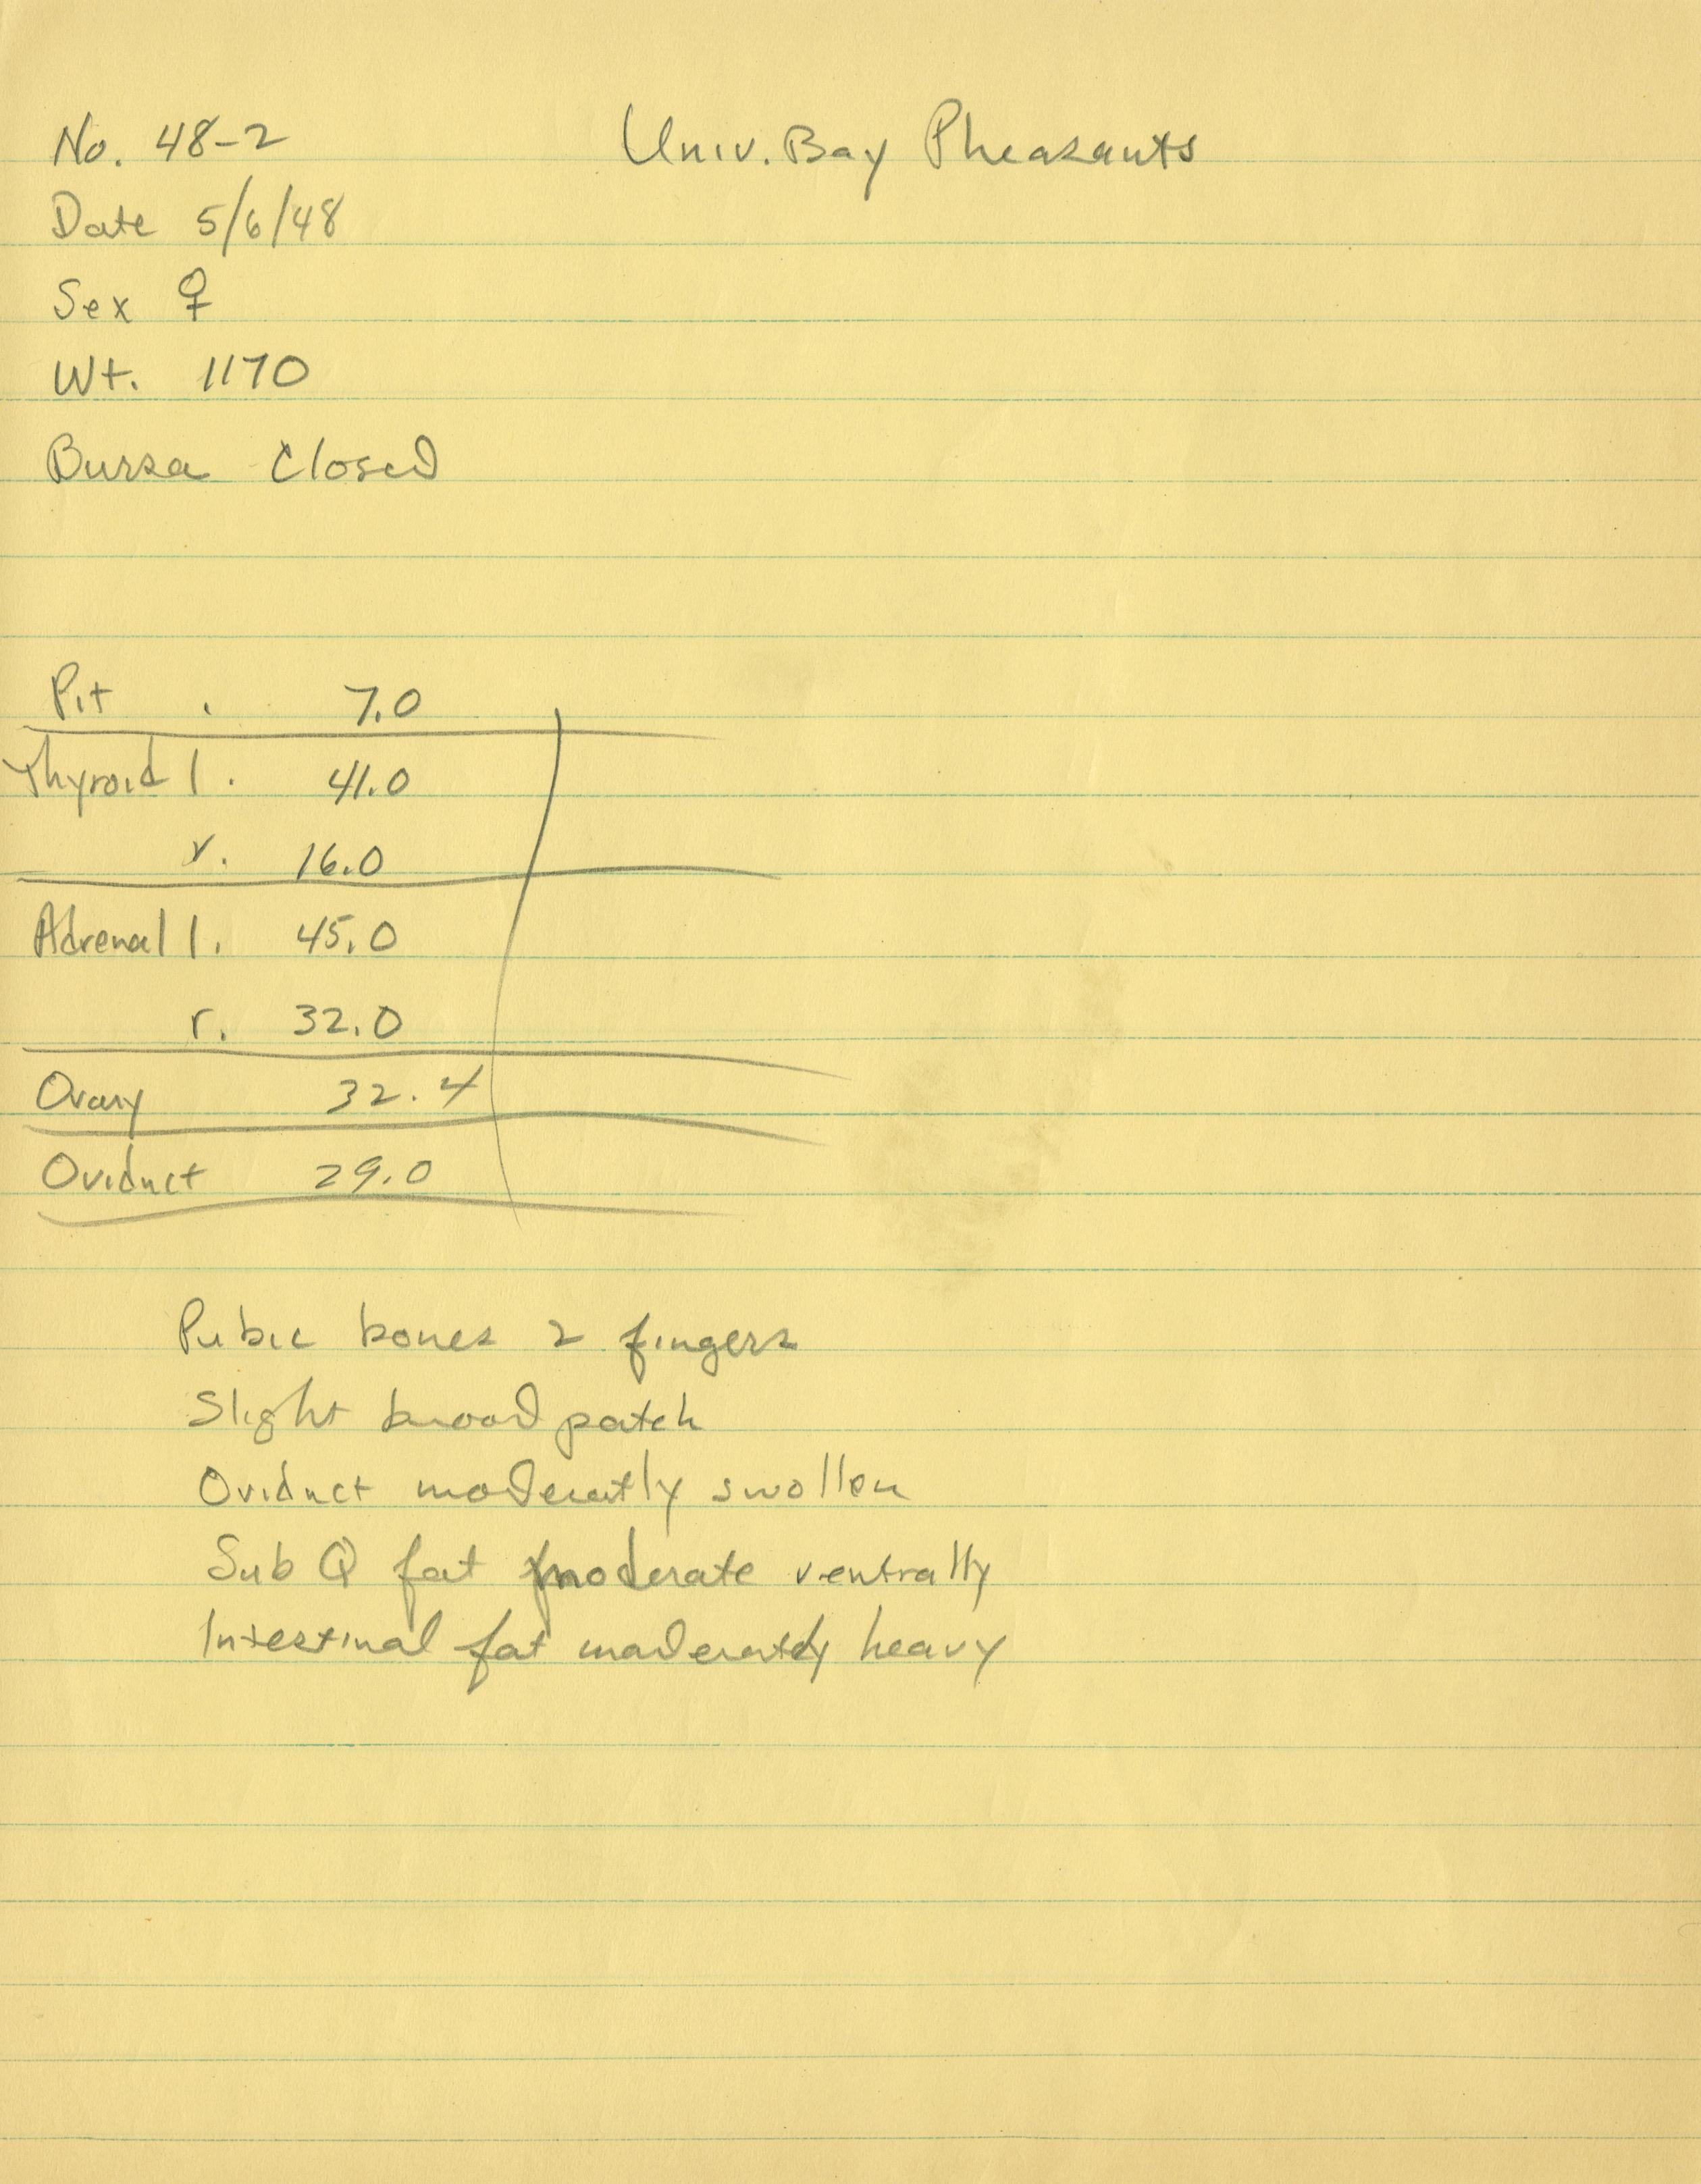 Univ. Bay Pheasants
No. 48-2
Date 5/6/48
Sex ♀
Wt. 1170
Bursa Closed
Pit . 7.0
Thyroid l. 41.0
r. 16.0
Adrenal l. 45.0
r. 32.0
Ovary 32.4
Oviduct 29.0
Pubic bones 2 fingers
Slight brood patch
Oviduct moderatly swollen
Sub Q fat moderate ventrally
Intestinal fat moderately heavy